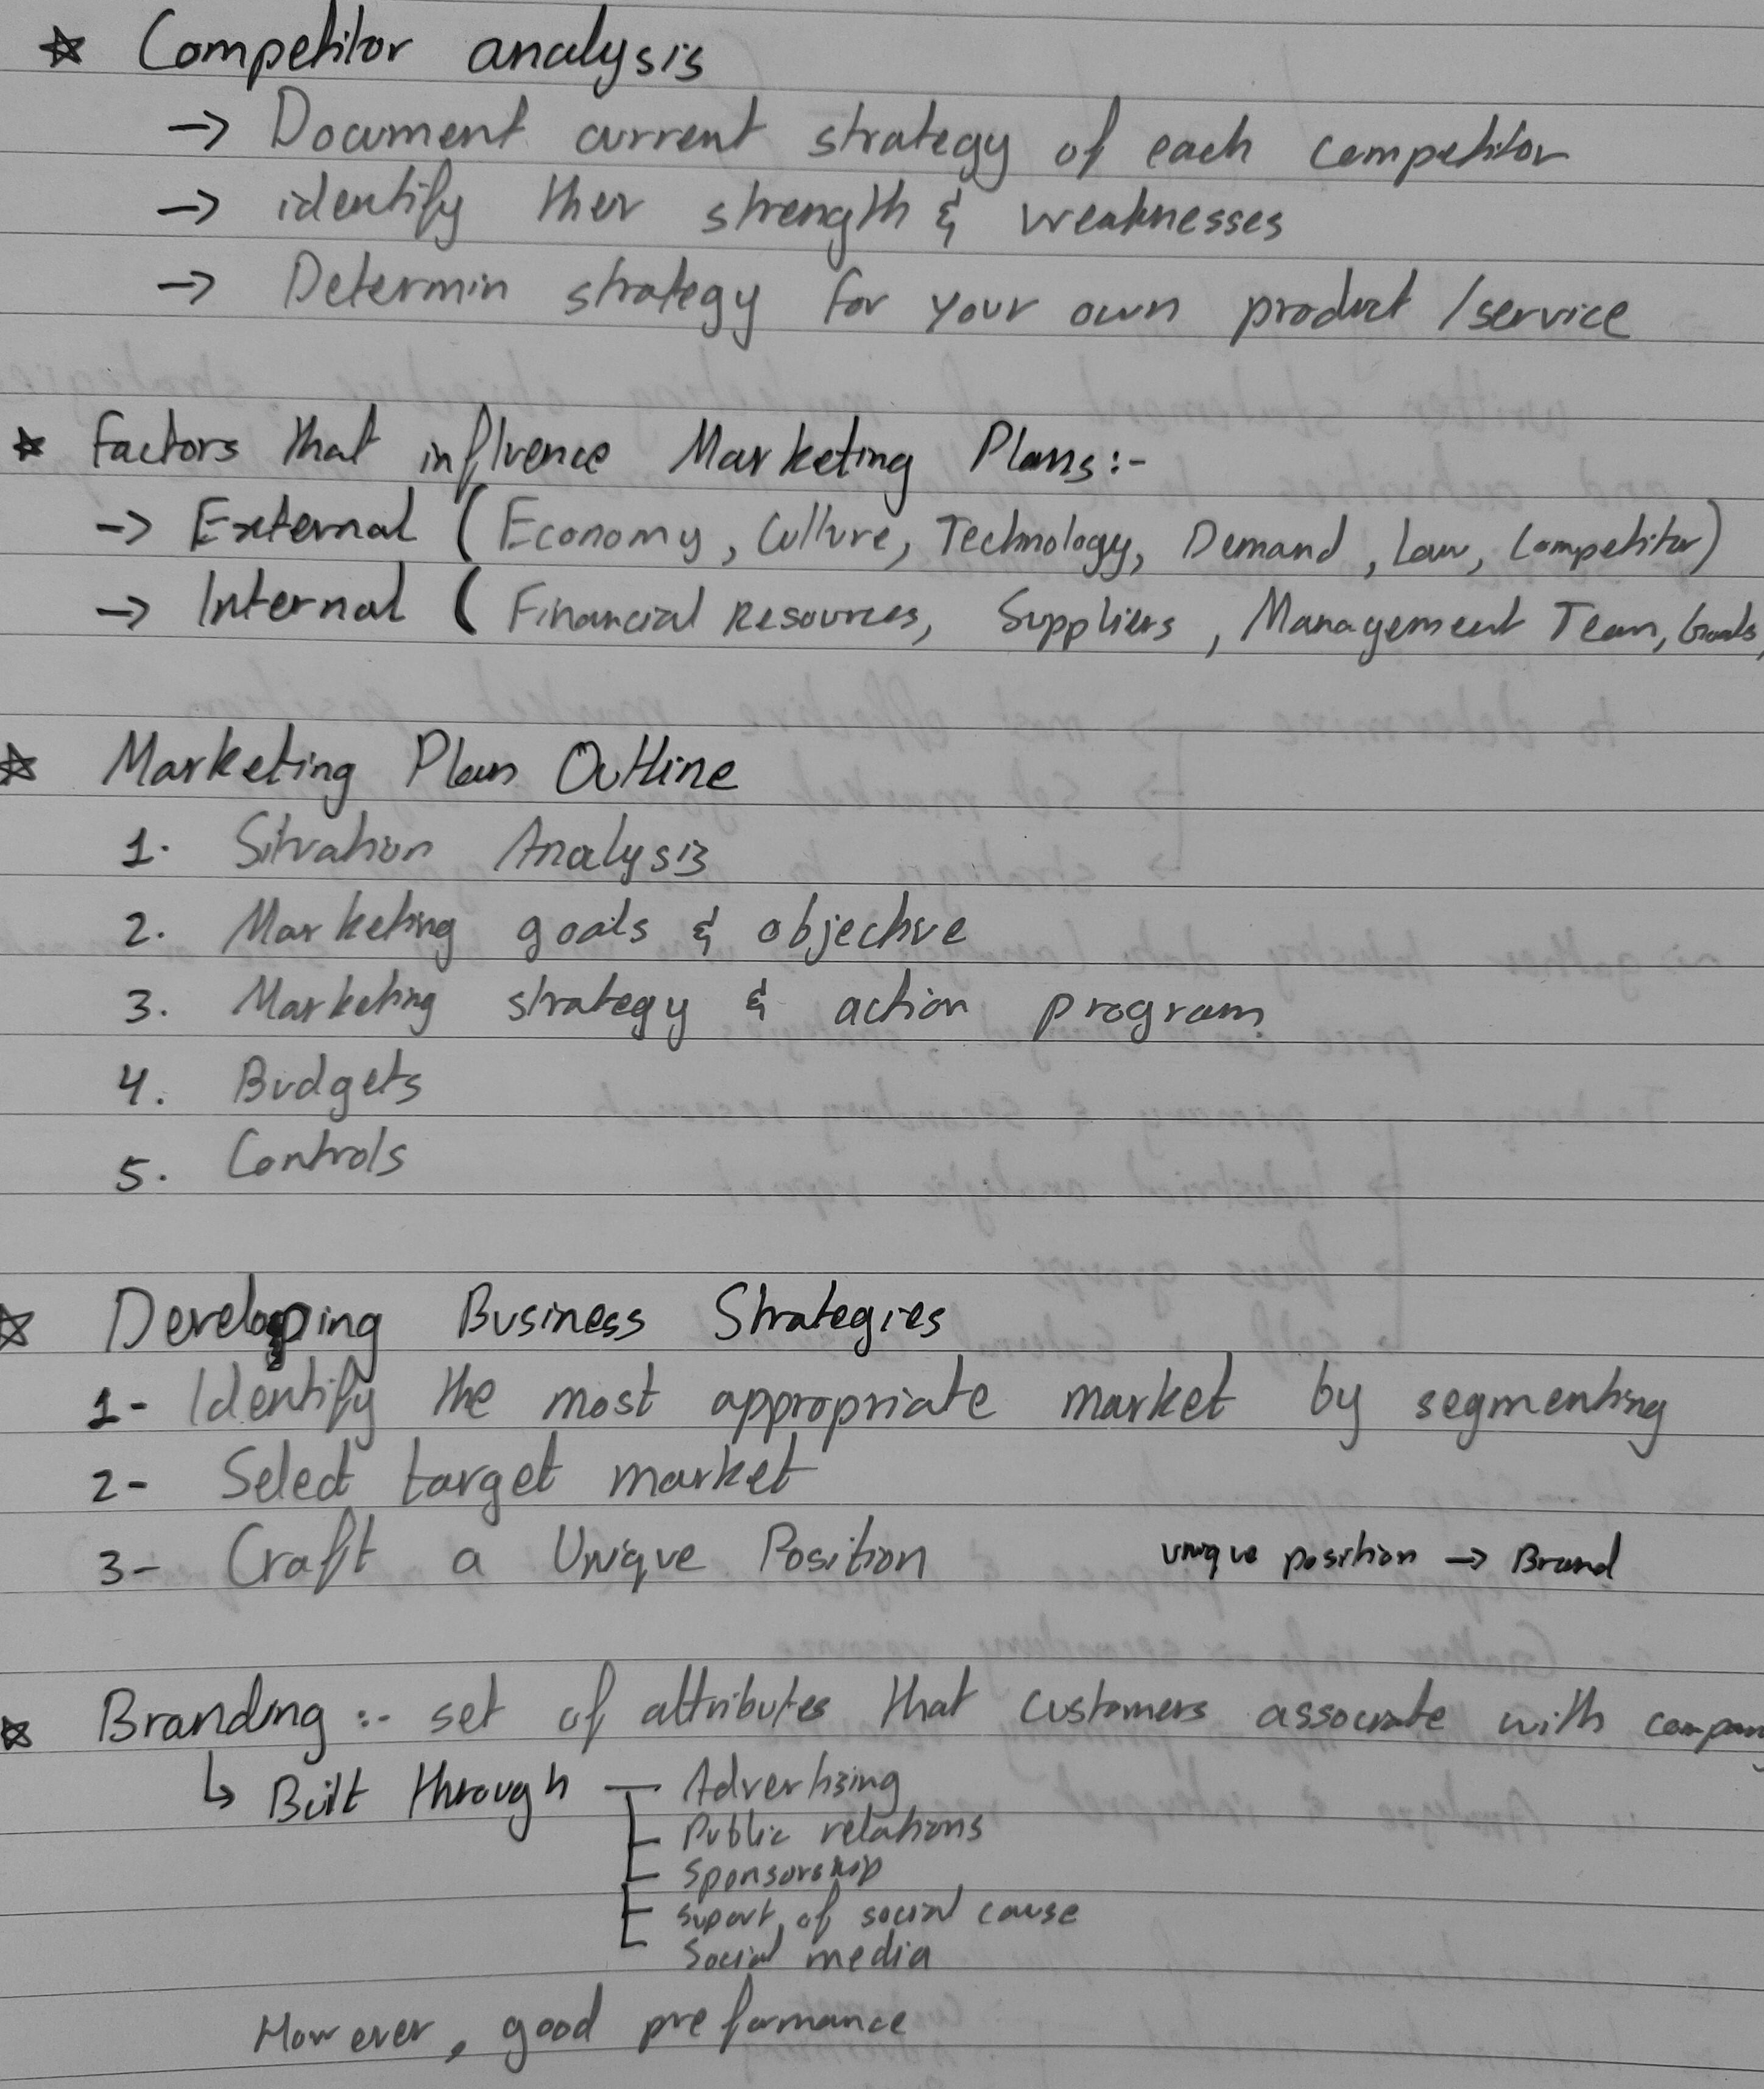 ☆ Competitor analysis
→ Document current strategy of each competitor
→ identify ther strength & weaknesses
→ Determin strategy for your own product / service
☆ Factors that influence Marketing Plans:-
→ External ( Economy, Culture, Technology, Demand, Law, Competitor)
→ Internal ( Financial Resources, Suppliers, Management Team, Goals,
☆ Marketing Plan Outline
1. Situation Analysis
2. Marketing goals & objective
3. Marketing strategy & action program
4. Budgets
5. Controls
☆ Developing Business Strategies
1- Identify the most appropriate market by segmenting
2- Select target market
3- Craft a Unique Position unique position → Brand
☆ Branding :- set of attributes that customers associate with company
↳ Built through — Advertising
Public relations
Sponsorship
Suport of social cause
Social media
However, good preformance